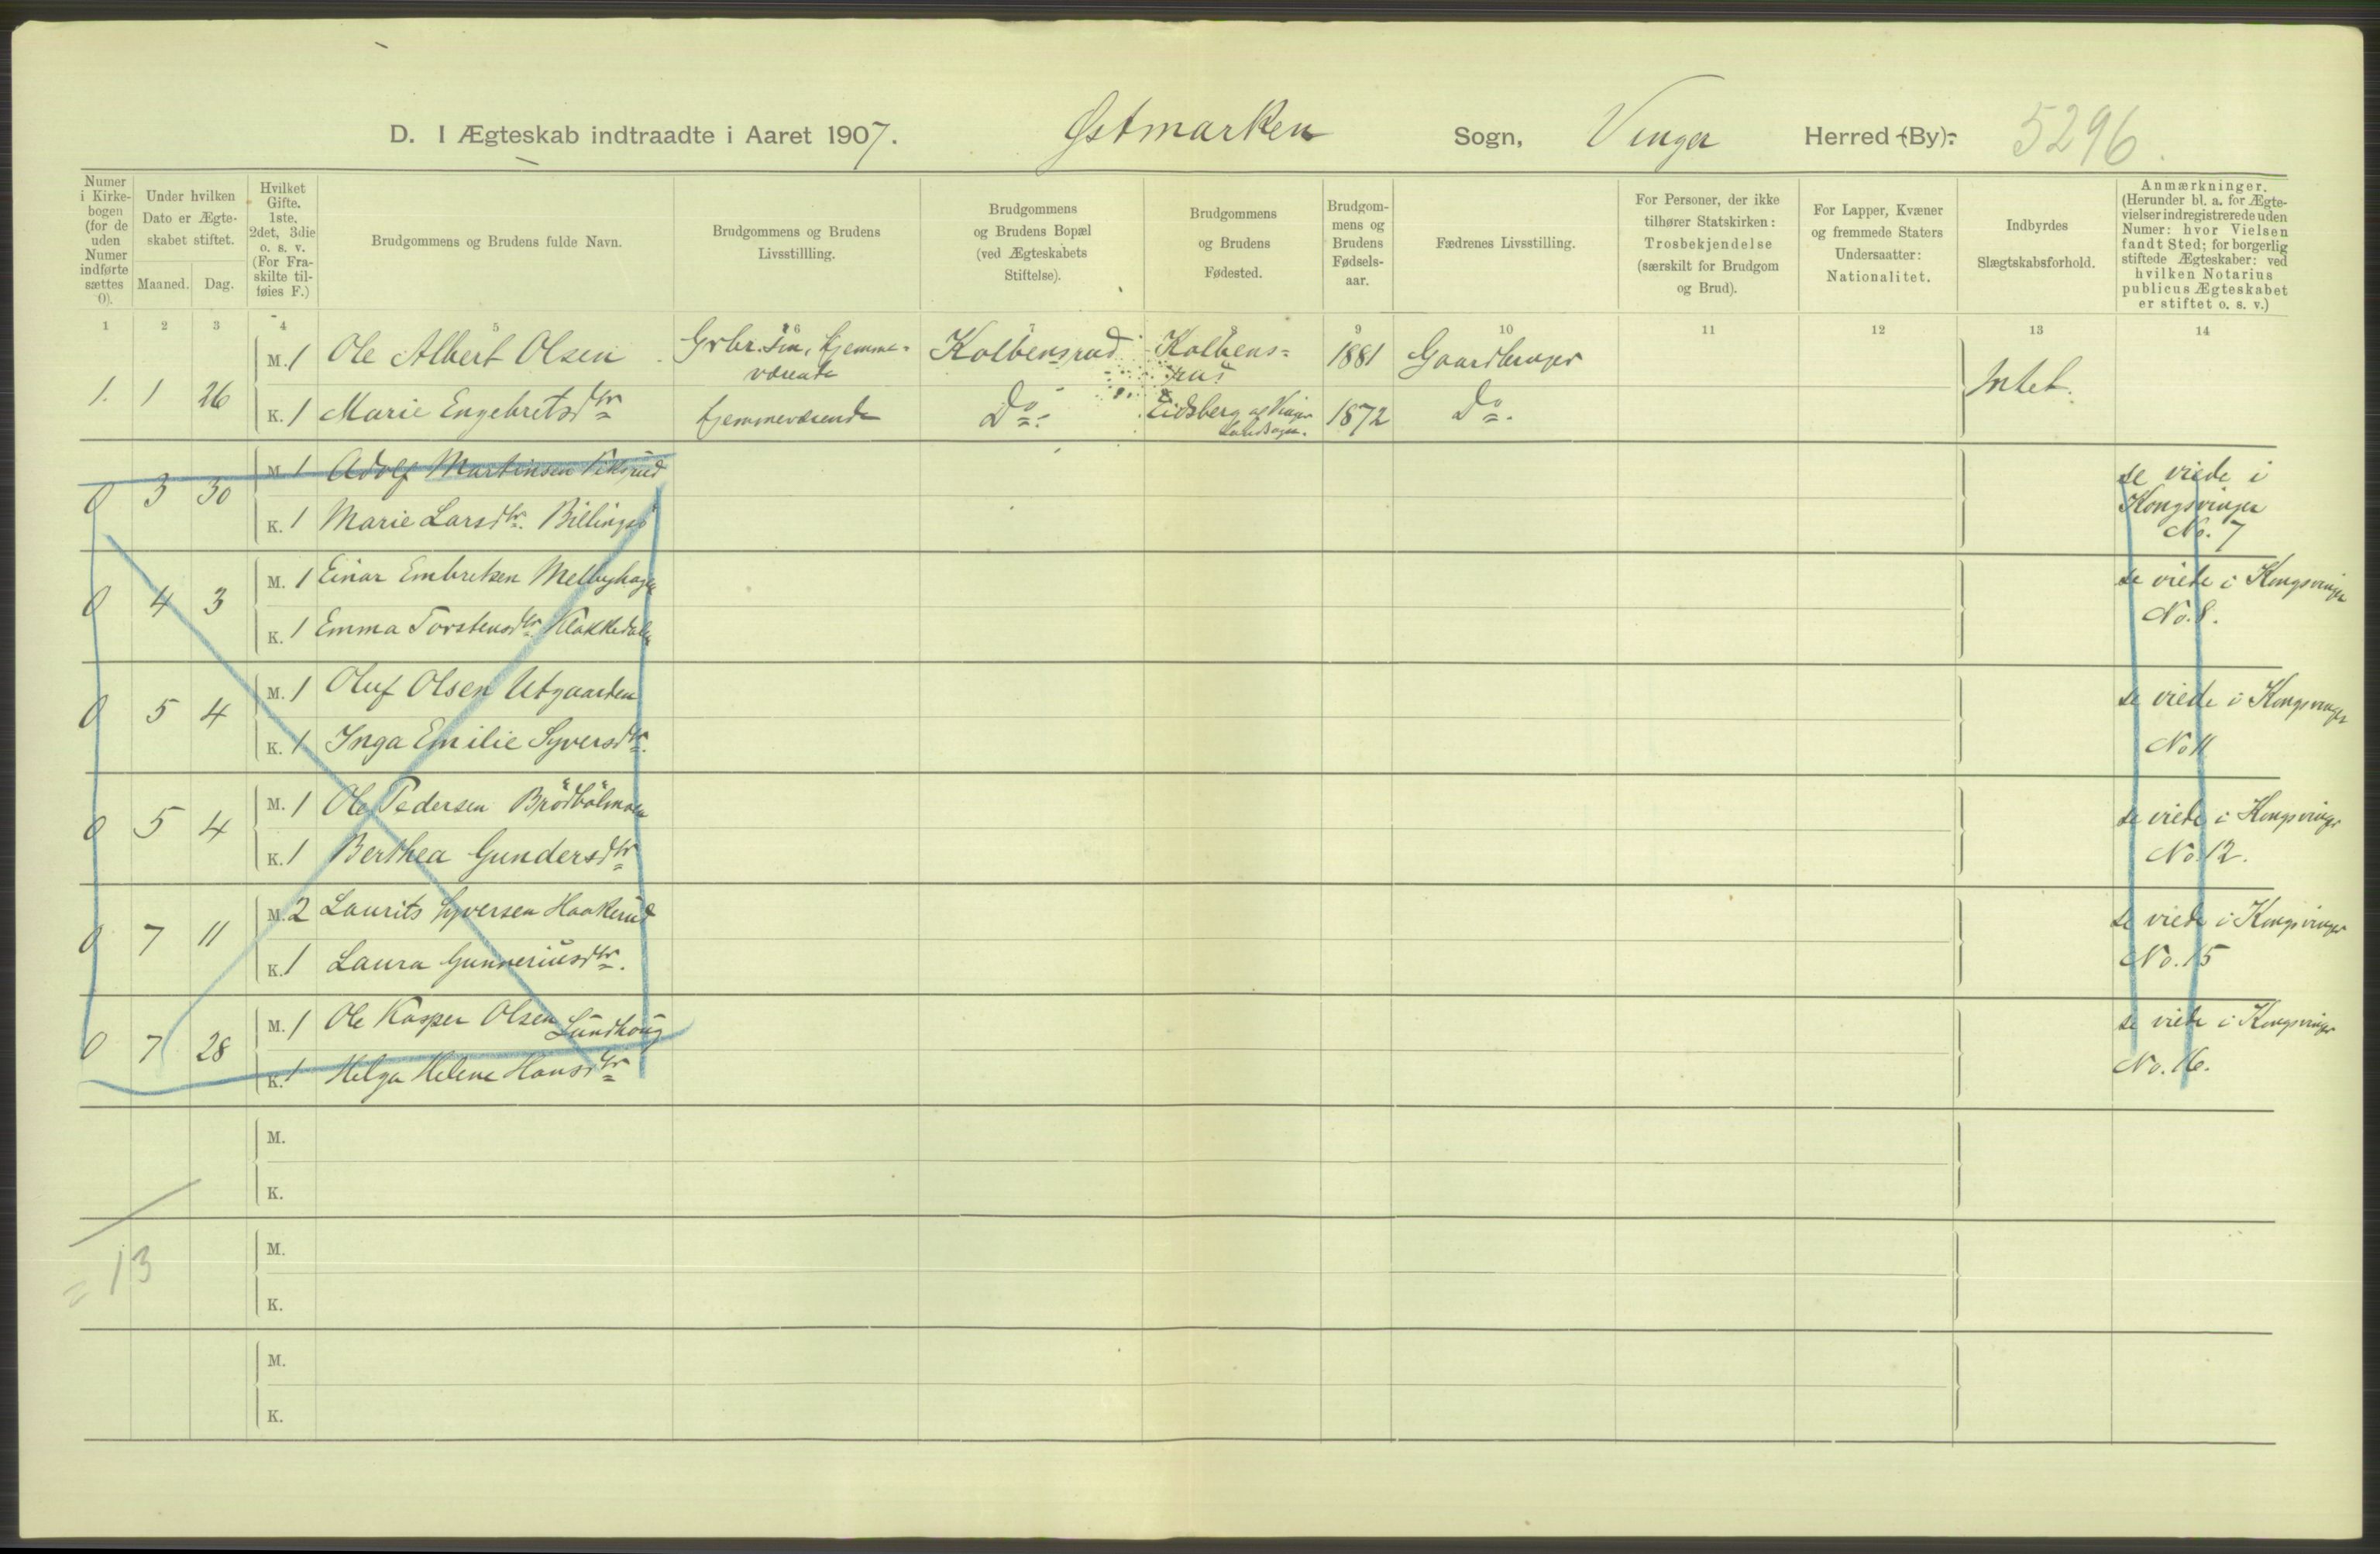 D. I Ægteskab indtraadte i Aaret 1907. Østmarken Sogn, Vinger Herred (By): 5296.
Numer i Kirke-bogen (for de uden Numer indførte sættes 0).
Under hvilken Dato er Ægte-skabet stiftet.
Maaned. Dag.
Hvilket Gifte. 1ste, 2det, 3die o. s. v. (For Fra-skilte til-føies F.)
Brudgommens og Brudens fulde Navn.
Brudgommens og Brudens Livsstillling.
Brudgommens og Brudens Bopæl (ved Ægteskabets Stiftelse).
Brudgommens og Brudens Fødested.
Brudgom-mens og Brudens Fødsels-aar.
Fædrenes Livsstilling.
For Personer, der ikke tilhører Statskirken: Trosbekjendelse (særskilt for Brudgom og Brud).
For Lapper, Kvæner og fremmede Staters Undersaatter: Nationalitet.
Indbyrdes Slægtskabsforhold.
Anmærkninger. (Herunder bl. a. for Ægte-vielser indregistrerede uden Numer: hvor Vielsen fandt Sted; for borgerlig stiftede Ægteskaber: ved hvilken Notarius publicus Ægteskabet er stiftet o. s. v.)
1 2 3 4 5 6 7 8 9 10 11 12 13 14
M. 1 Ole Albert Olsen Grbr. søn, hjemme-værende Kolbensrud Kolbens=rud 1881 Gaardbruger
1. 1 26 Intet.
K. 1 Marie Engebretsdtr hjemmeværende Do Eidsberg Vinger 1872 Do.
M. 1 Adolf Martinsen
0 3 30
K. 1 Marie Larsdtr. Billingsb
se viede i
Kongsvinger
No. 7
M. 1 Einar Embretsen Melbyhagen
0 4 3
K. 1 Emma Torstensdtr. Klakkedalen
se viede i Kongsvinger
No. 8.
M. 1 Oluf Olsen Utgaarden
0 5 4
K. 1 Inga Emilie Syversdtr.
se viede i Kongsvinger
No 11
M. 1 Ole Pedersen Brødbølmoen
0 5 4
K. 1 Berthea Gundersdtr
se viede i Kongsvinger
No. 12.
M. 2 Laurits Syversen Haakerud
0 7 11
K. 1 Laura Gunneriusdtr.
se viede i Kongsvinger
No. 15
M. 1 Ole Kasper Olsen Lundhoug
0 7 28
K. 1 Helga Helene Hansdtr
se viede i Kongsvinger
No. 16.
M.
K.
M.
= 13
K.
M.
K.